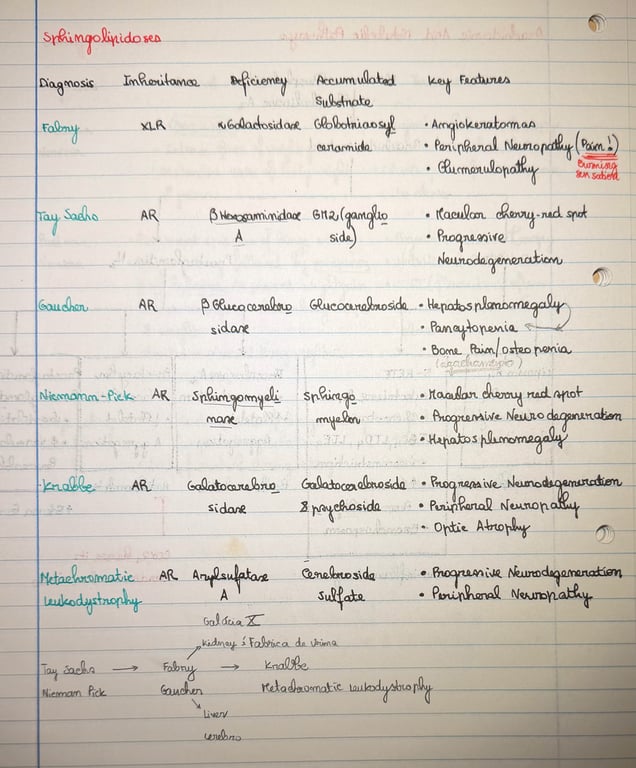 Sphingolipidoses
Diagnosis Inheritance Deficiency Accumulated Key Features
Substrate
Fabry XLR α Galactosidase Globotriaosyl • Angiokeratomas
ceramide • Peripheral Neuropathy (Pain!)
• Glumerulopathy Burning
sensation
Tay Sachs AR β Hexosaminidase GM2 (ganglio • Macular cherry-red spot
A side) • Progressive
Neurodegeneration
Gaucher AR β Glucocerebro Glucocerebroside • Hepatosplenomegaly
sidase • Pancytopenia
• Bone Pain/osteopenia
Niemann-Pick AR Sphingomyeli Sphingo • Macular cherry red spot
nase myelon • Progressive Neurodegeneration
• Hepatosplenomegaly
Krabbe AR Galatocerebro Galatocerebroside • Progressive Neurodegeneration
sidase & psychoside • Peripheral Neuropathy
• Optic Atrophy
Metachromatic AR Arylsulfatase Cerebroside • Progressive Neurodegeneration
Leukodystrophy A Sulfate • Peripheral Neuropathy
Galácia X
Kidney: Fabrica de Urina
Tay Sachs → Fabry → Krabbe
Nieman Pick Gaucher Metachromatic Leukodystrophy
Liver/
cerebro